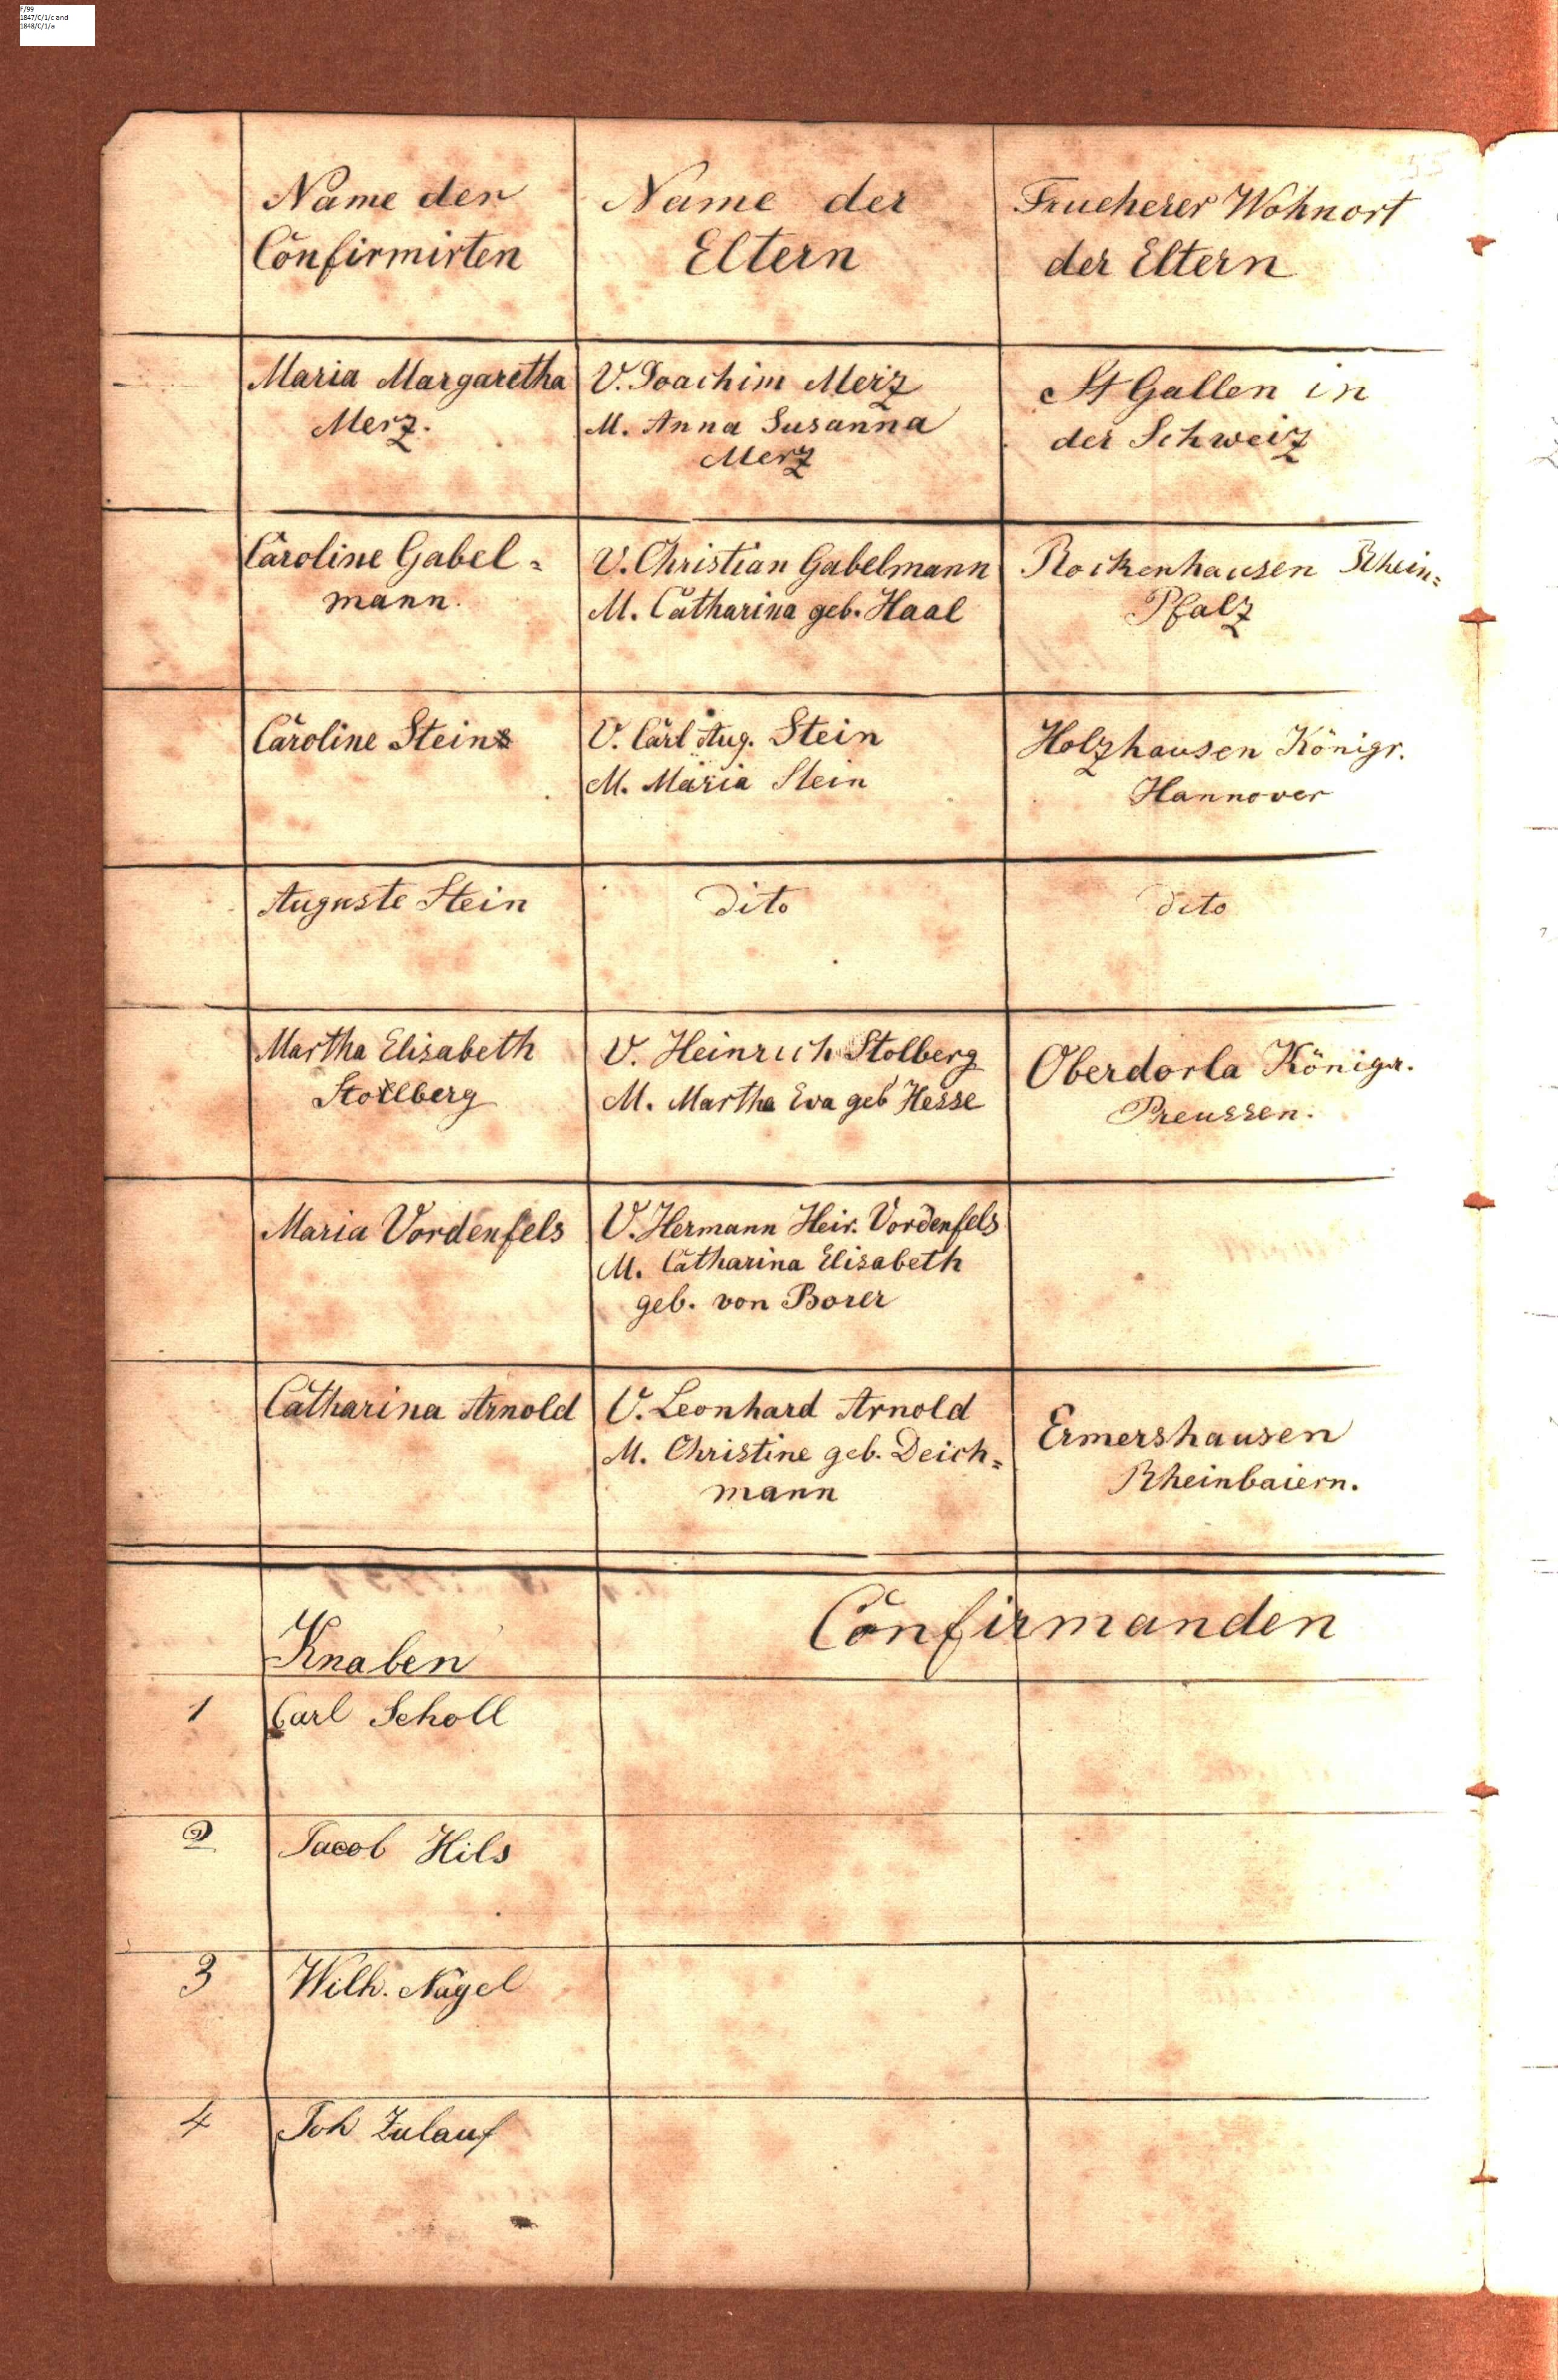 F/99
1847/C/1/c and
1848/C/1/a
Name der
Confirmirten
Name der
Eltern
Frueherer Wohnort
der Eltern
Maria Margaretha
Merz.
V. Joachim Merz
M. Anna Susanna
Merz
St Gallen in
der Schweiz
Caroline Gabel=
mann.
V. Christian Gabelmann
M. Catharina geb. Haal
Rockenhausen Rhein=
Pfalz
Caroline Stein
V. Carl Aug. Stein
M. Maria Stein
Holzhausen Königr.
Hannover
Auguste Stein
dito
dito
Martha Elisabeth
Stollberg
V. Heinrich Stolberg
M. Martha Eva geb Hesse
Oberdorla Königr.
Preussen.
Maria Vordenfels
V. Hermann Heir. Vordenfels
M. Catharina Elisabeth
geb. von Borer
Catharina Arnold
V. Leonhard Arnold
M. Christine geb. Deich=
mann
Ermershausen
Rheinbaiern.
Knaben
Confirmanden
1 Carl Scholl
2 Jacob Hils
3 Wilh. Nagel
4 Joh Zulauf